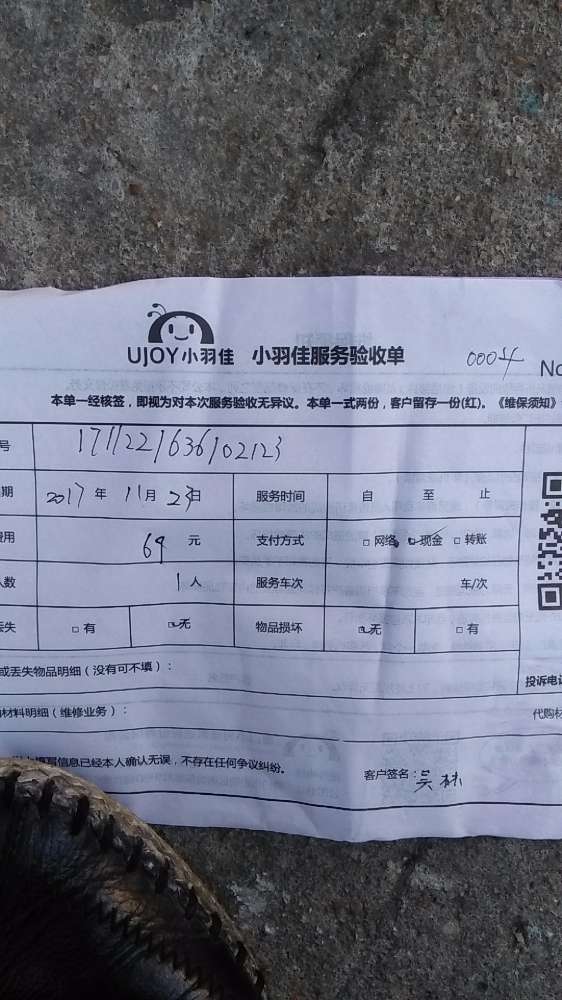 UJOY小羽佳 小羽佳服务验收单 No
本单一经核签，即视为对本次服务验收无异议。本单一式两份，客户留存一份(红)。《维保须知》
号 1711221636102123
期 2017年11月23日 服务时间 自 至 止
费用 69元 支付方式 □网络 □现金 □转账
人数 1人 服务车次 车/次
丢失 □有 □无 物品损坏 □无 □有
或丢失物品明细（没有可不填）：
投诉电话
材料明细（维修业务）：
代购材
填写信息已经本人确认无误，不存在任何争议纠纷。
客户签名：吴林